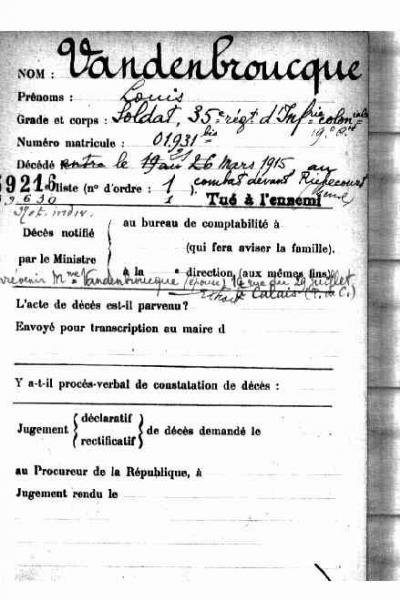 NOM : Vandenbroucque
Prénoms : Louis
Grade et corps : Soldat, 35e régt d'Infrie coloniale
19e Cie
Numéro matricule : 01931 bis
Décédé entre le 19 au 26 Mars 1915 au
combat devant Ripecourt
59216 Liste (n° d'ordre : 1 ). Tué à l'ennemi
59630 1
Not. indiv.
Décès notifié
par le Ministre
au bureau de comptabilité à
(qui fera aviser la famille).
à la e direction (aux mêmes fins)
prévenir Mme Vandenbroucque (épouse) 19 rue du 29 Juillet
Calais (P. de C.)
L'acte de décès est-il parvenu ?
Envoyé pour transcription au maire d
Y a-t-il procès-verbal de constatation de décès :
Jugement { déclaratif
rectificatif } de décès demandé le
au Procureur de la République, à
Jugement rendu le